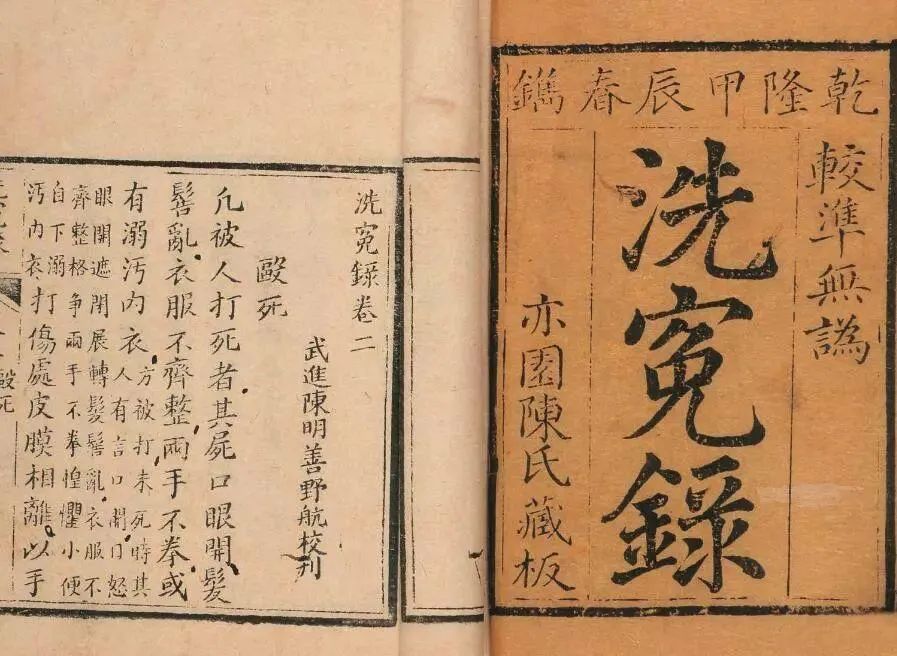 乾隆甲辰春鐫
較準無譌
洗寃錄
亦園陳氏藏板
洗寃錄卷二
武進陳明善野航校刊
毆死
凡被人打死者其屍口眼開髮
髻亂衣服不齊整兩手不拳或
有溺汚內衣方被打未死時其
人有言口開曰怒
眼開遮閉展轉髮髻亂衣服不
齊整格爭兩手不拳惶懼小便
自下溺
汚內衣打傷處皮膜相離以手
毆死